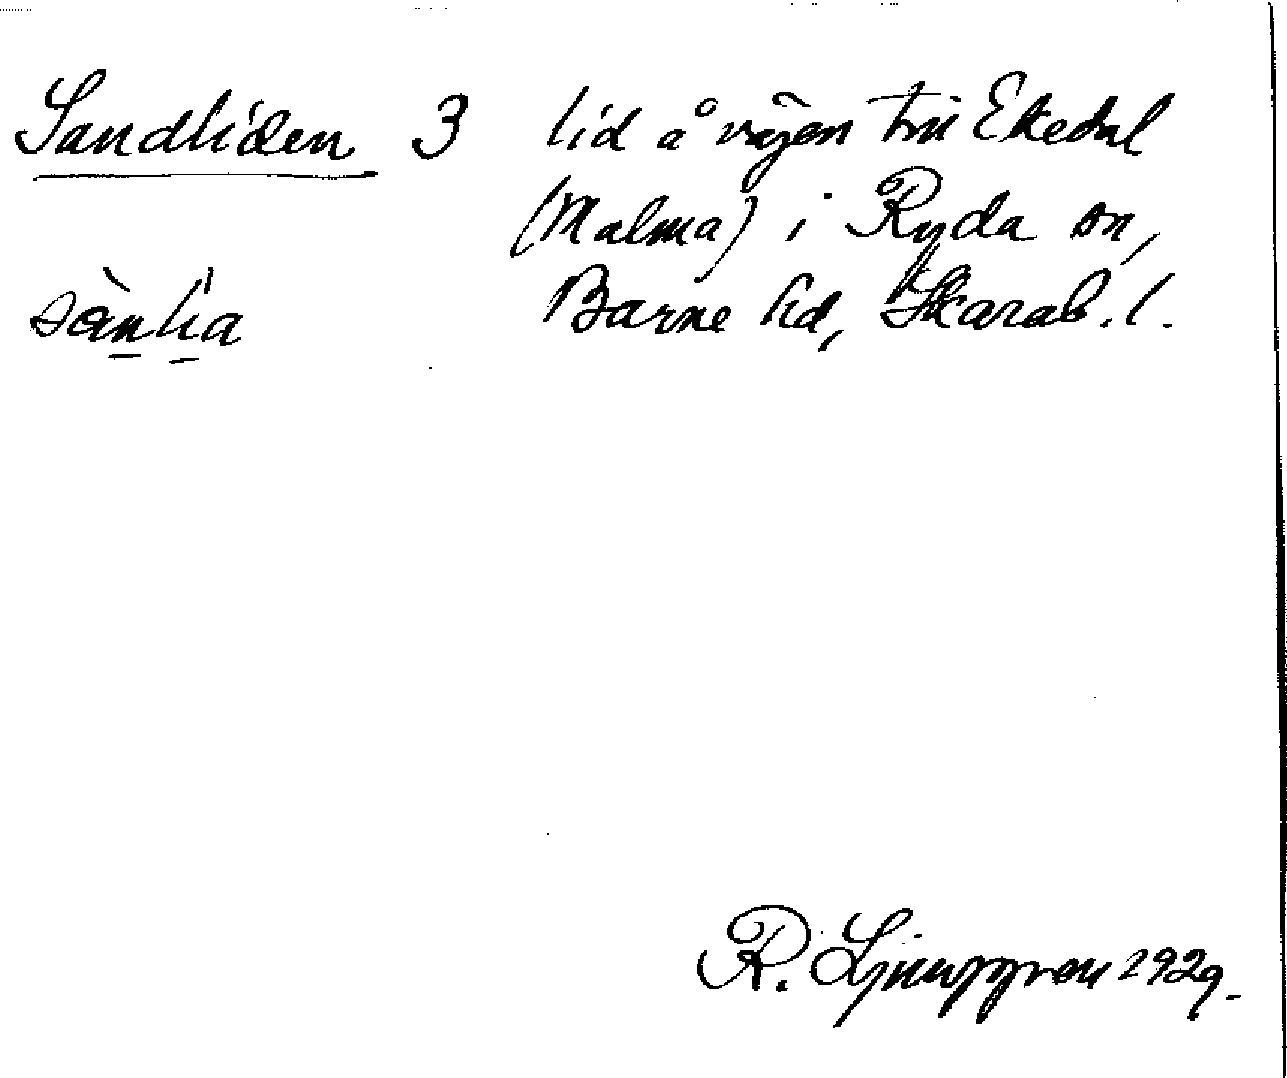 Sandliden 3 lid å vägen till Ekedal
(Malma) i Ryda sn,
sànlía Barne hd, Skarab. l.
R. Ljunggren 1929.